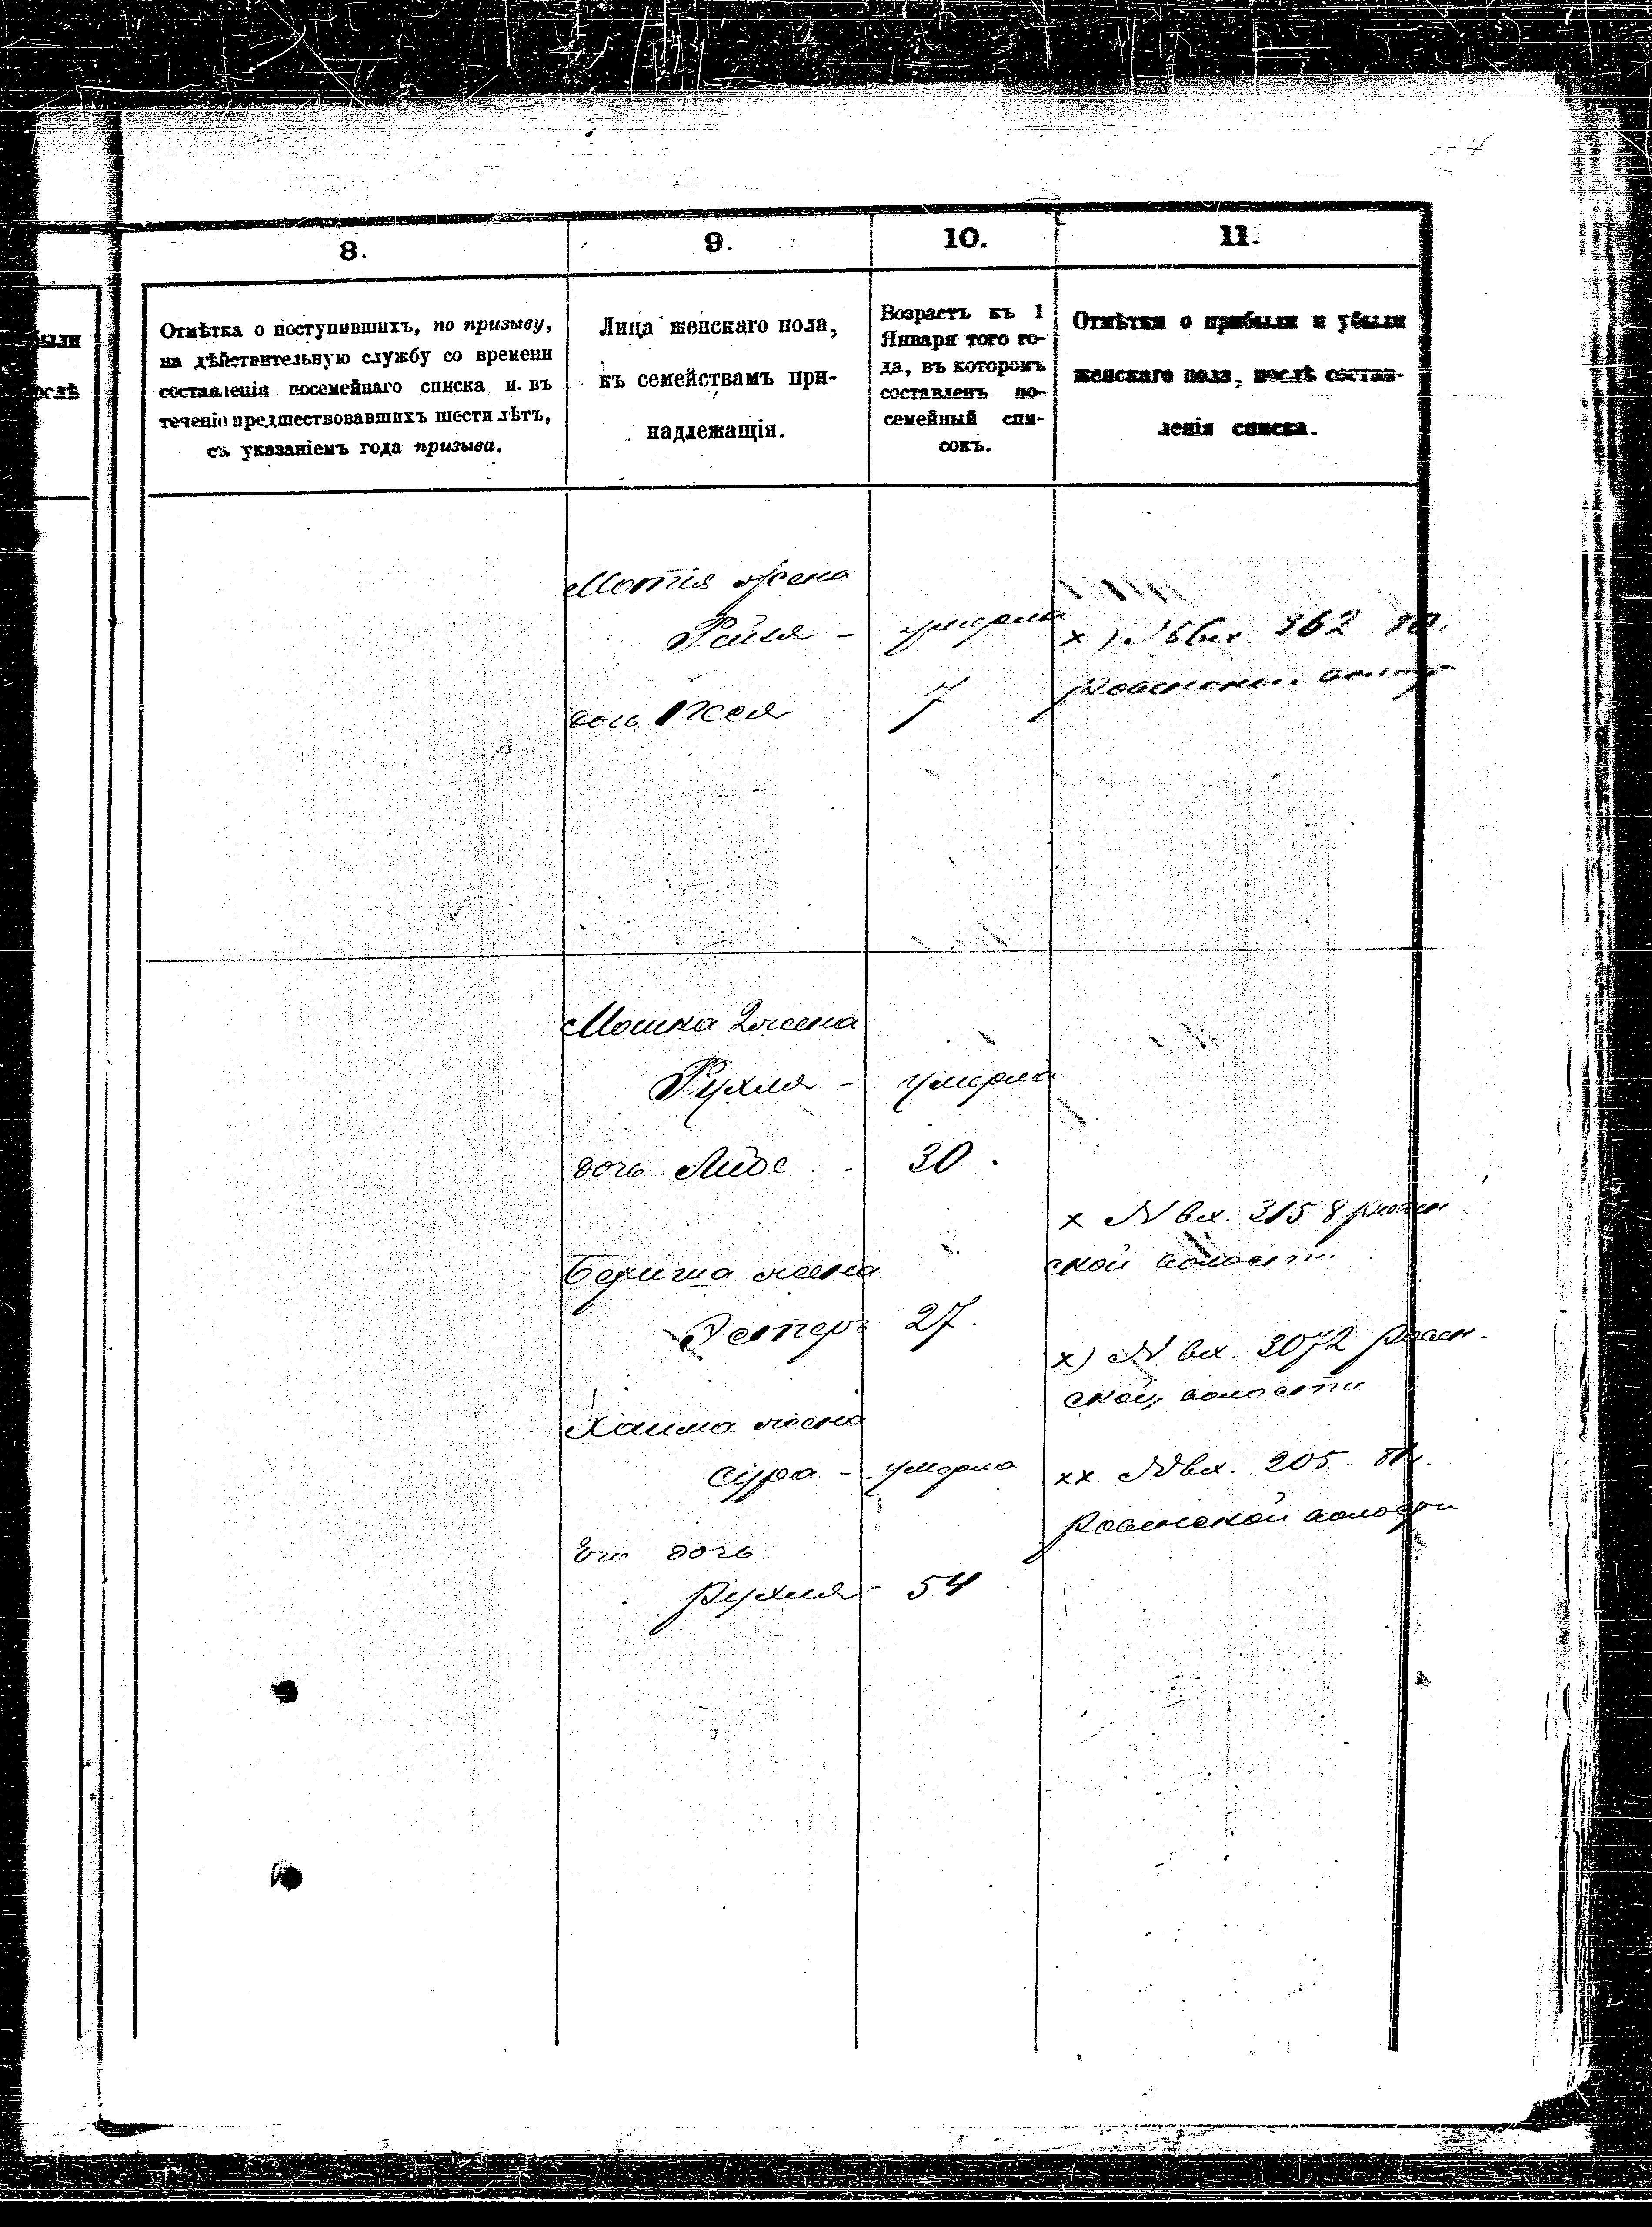 были
ослѣ
8.
9.
10.
11.
Отмѣтка о поступившихъ, по призыву,
на дѣйствительную службу со времени
составленія посемейнаго списка и въ
теченіе предшествовавшихъ шести лѣтъ,
съ указаніемъ года призыва.
Лица женскаго пола,
къ семействамъ при-
надлежащія.
Возрастъ къ 1
Января того го-
да, въ которомъ
составленъ по-
семейный спи-
сокъ.
Отмѣтки о прибыли и убыли
женскаго пола, послѣ состав-
ленія списка.
Мотія жена
Рейзя - умерла
х) № вх. 362
Ровенской волост
дочь Песя 7
Мошка 2 жена
Рухля - умерла
дочь 30.
х № вх. 3158 Ровен
ской волости
Берша жена
Эстеръ 27.
х) № вх. 3072 Ровен-
ской волости
Хаима жена
Сура - умерла
хх № вх. 205
Ровенской волости
Его дочь
Рухля - 54